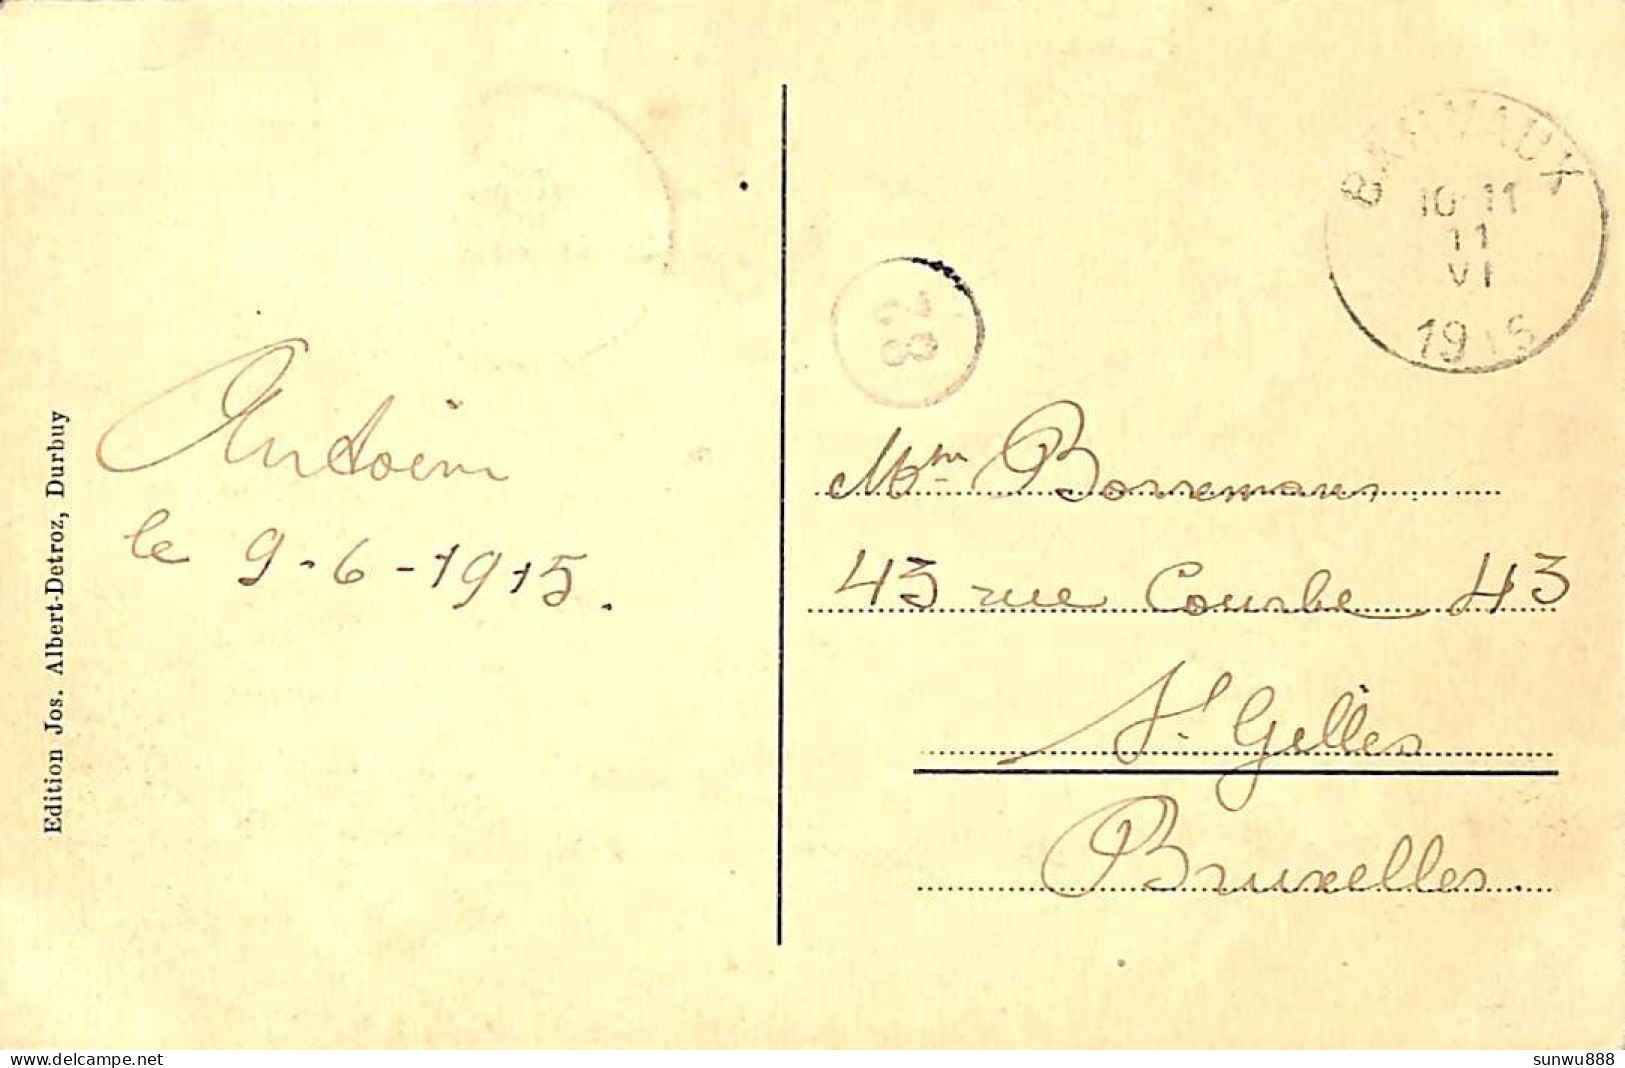 Edition Jos. Albert-Detroz, Durbuy
Antoine
le 9-6-1915.
BARVAUX
10-11
11
VI
1915
28
Mme Borremans
43 rue Courbe 43
St. Gilles
Bruxelles.
delcampe.net
sunwu888